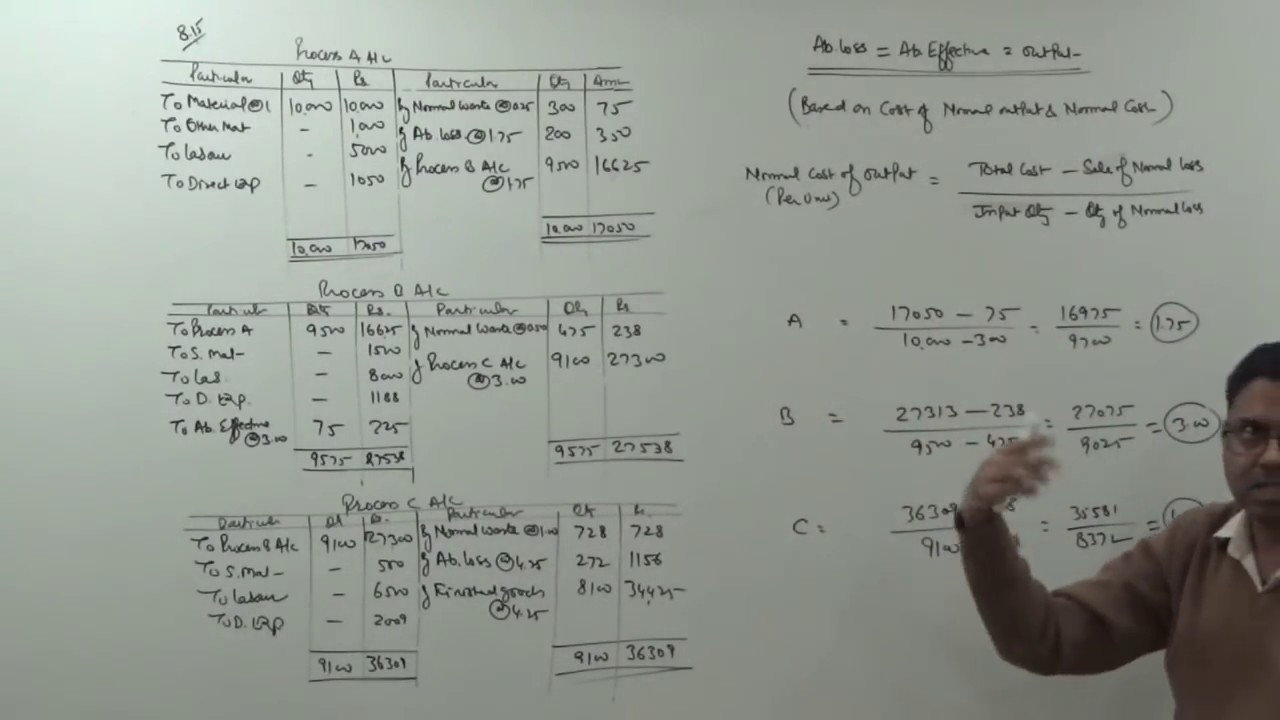 8.15
Process A A/c
Particular Qty Rs. Particular Qty Amt
To Material @1 10,000 10,000 By Normal Waste @0.25 300 75
To Other Mat - 1,000 By Ab. loss @1.75 200 350
To Labour - 5000 By Process B A/c 9500 16625
@1.75
To Direct Exp - 1050
10,000 17050 10,000 17050
Process B A/c
Particular Qty Rs. Particular Qty Rs
To Process A 9500 16625 By Normal Waste @0.50 475 238
To S. Mat - 1500 By Process C A/c 9100 27300
@3.00
To Lab. - 8000
To D. Exp. - 1188
To Ab. Effective 75 225
@3.00
9575 27538 9575 27538
Process C A/c
Particular Qt Rs. Particular Qt Rs
To Process B A/c 9100 27300 By Normal Waste @1.00 728 728
To S. Mat - 500 By Ab. loss @4.25 272 1156
To Labour - 6500 By Finished goods 8100 34425
@4.25
To D. Exp - 2009
9100 36309 9100 36309
Ab. Loss = Ab. Effective = output
(Based on Cost of Normal output & Normal Cost)
Normal Cost of output = Total Cost - Sale of Normal loss
(Per Unit) Input Qty - Qty of Normal loss
A = 17050 - 75 = 16975 = 1.75
10,000 - 300 9700
B = 27313 - 238 = 27075 = 3.00
9500 - 475 9025
C = 36309 8 = 35581 =
9100 8372